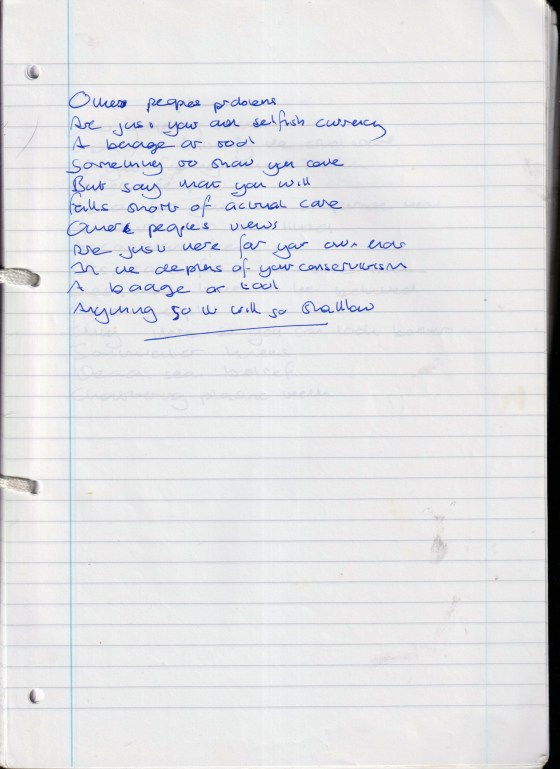 Other peoples problems
Are just your own selfish currency
A badge or tool
Something to show you care
But say what you will
Falls short of actual care
Other peoples views
Are just here for your own ends
In the deepness of your conservatism
A badge or tool
Anything so it will so shallow